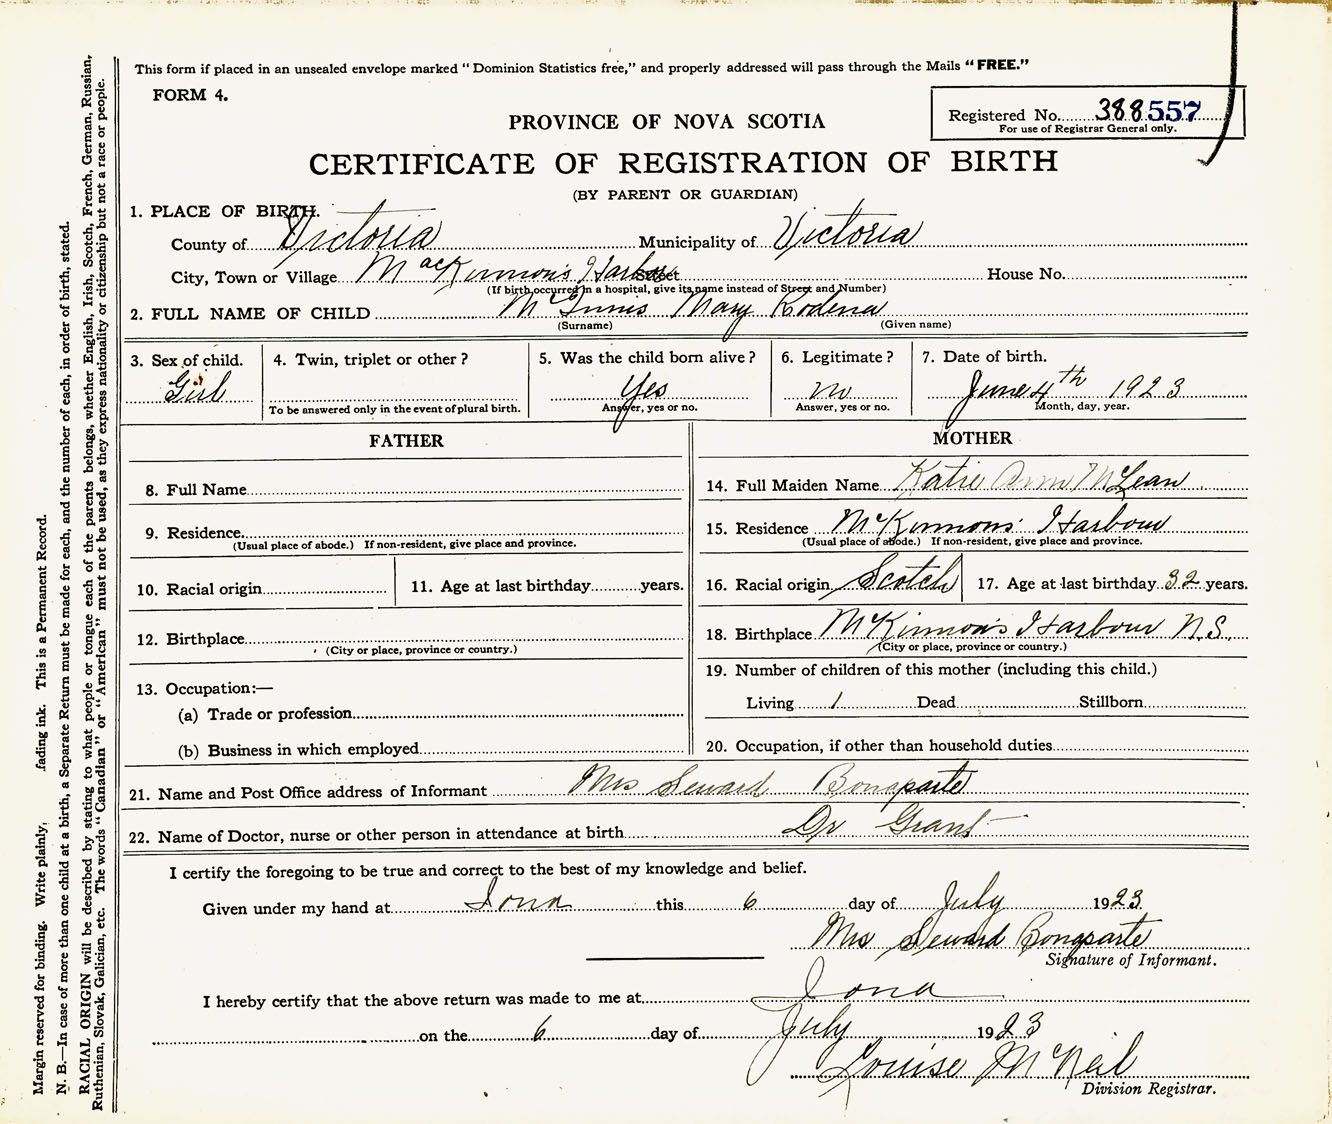 This form if placed in an unsealed envelope marked "Dominion Statistics free," and properly addressed will pass through the Mails "FREE."
FORM 4.
Registered No. 388557
For use of Registrar General only.
PROVINCE OF NOVA SCOTIA
CERTIFICATE OF REGISTRATION OF BIRTH
(BY PARENT OR GUARDIAN)
1. PLACE OF BIRTH.
County of Victoria Municipality of Victoria
City, Town or Village MacKinnon's Harbour Street House No.
(If birth occurred in a hospital, give its name instead of Street and Number)
2. FULL NAME OF CHILD McInnis Mary Rodena
(Surname) (Given name)
3. Sex of child. 4. Twin, triplet or other? 5. Was the child born alive? 6. Legitimate? 7. Date of birth.
Girl Yes no June 4th 1923
To be answered only in the event of plural birth. Answer, yes or no. Answer, yes or no. Month, day, year.
FATHER
8. Full Name
9. Residence
(Usual place of abode.) If non-resident, give place and province.
10. Racial origin 11. Age at last birthday years.
12. Birthplace
(City or place, province or country.)
13. Occupation:—
(a) Trade or profession
(b) Business in which employed
MOTHER
14. Full Maiden Name Katie Ann McLean
15. Residence McKinnons Harbour
(Usual place of abode.) If non-resident, give place and province.
16. Racial origin Scotch 17. Age at last birthday 32 years.
18. Birthplace McKinnon's Harbour N.S.
(City or place, province or country.)
19. Number of children of this mother (including this child.)
Living 1 Dead Stillborn
20. Occupation, if other than household duties
21. Name and Post Office address of Informant Mrs Seward Bonaparte
22. Name of Doctor, nurse or other person in attendance at birth Dr Grant
I certify the foregoing to be true and correct to the best of my knowledge and belief.
Given under my hand at Iona this 6 day of July 1923
Mrs Seward Bonaparte
Signature of Informant.
I hereby certify that the above return was made to me at Iona
on the 6 day of July 1923
Louise McNeil
Division Registrar.
Margin reserved for binding. Write plainly, fading ink. This is a Permanent Record.
N. B.—In case of more than one child at a birth, a Separate Return must be made for each, and the number of each, in order of birth, stated.
RACIAL ORIGIN will be described by stating to what people or tongue each of the parents belongs, whether English, Irish, Scotch, French, German, Russian,
Ruthenian, Slovak, Galician, etc. The words "Canadian" or "American" must not be used, as they express nationality or citizenship but not a race or people.